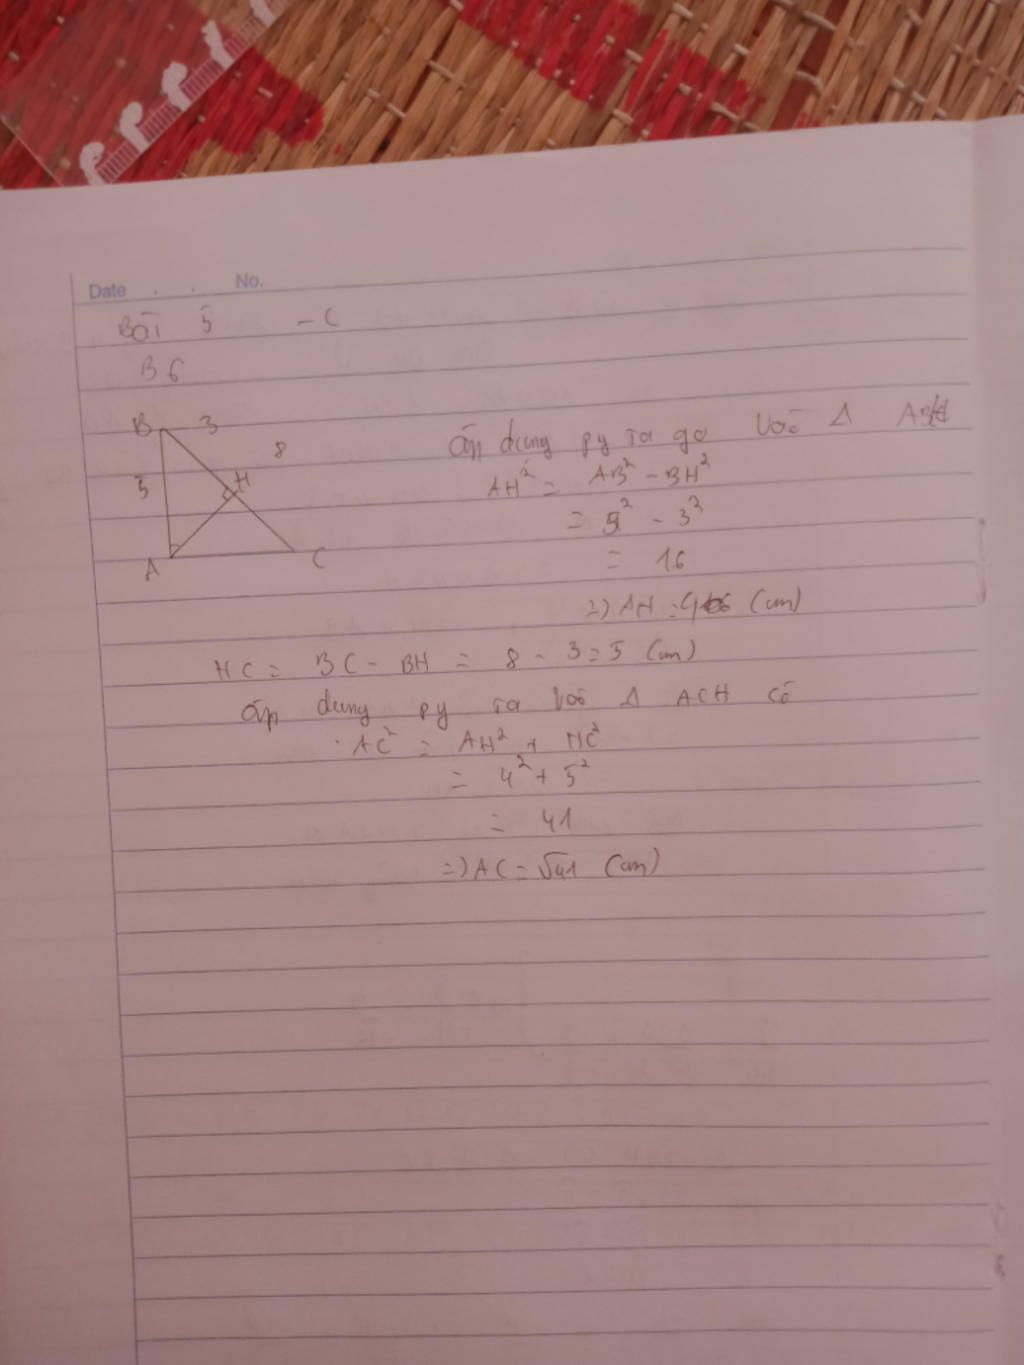 Date . . No.
Bài 5 - C
B 6
B 3
8
5
H
A C
áp dụng py ta go với Δ
AH² = AB² - BH²
= 5² - 3²
= 16
=) AH = 4 (cm)
HC = BC - BH = 8 - 3 = 5 (cm)
áp dụng py ta với Δ ACH có
AC² = AH² + HC²
= 4² + 5²
= 41
=) AC = √41 (cm)